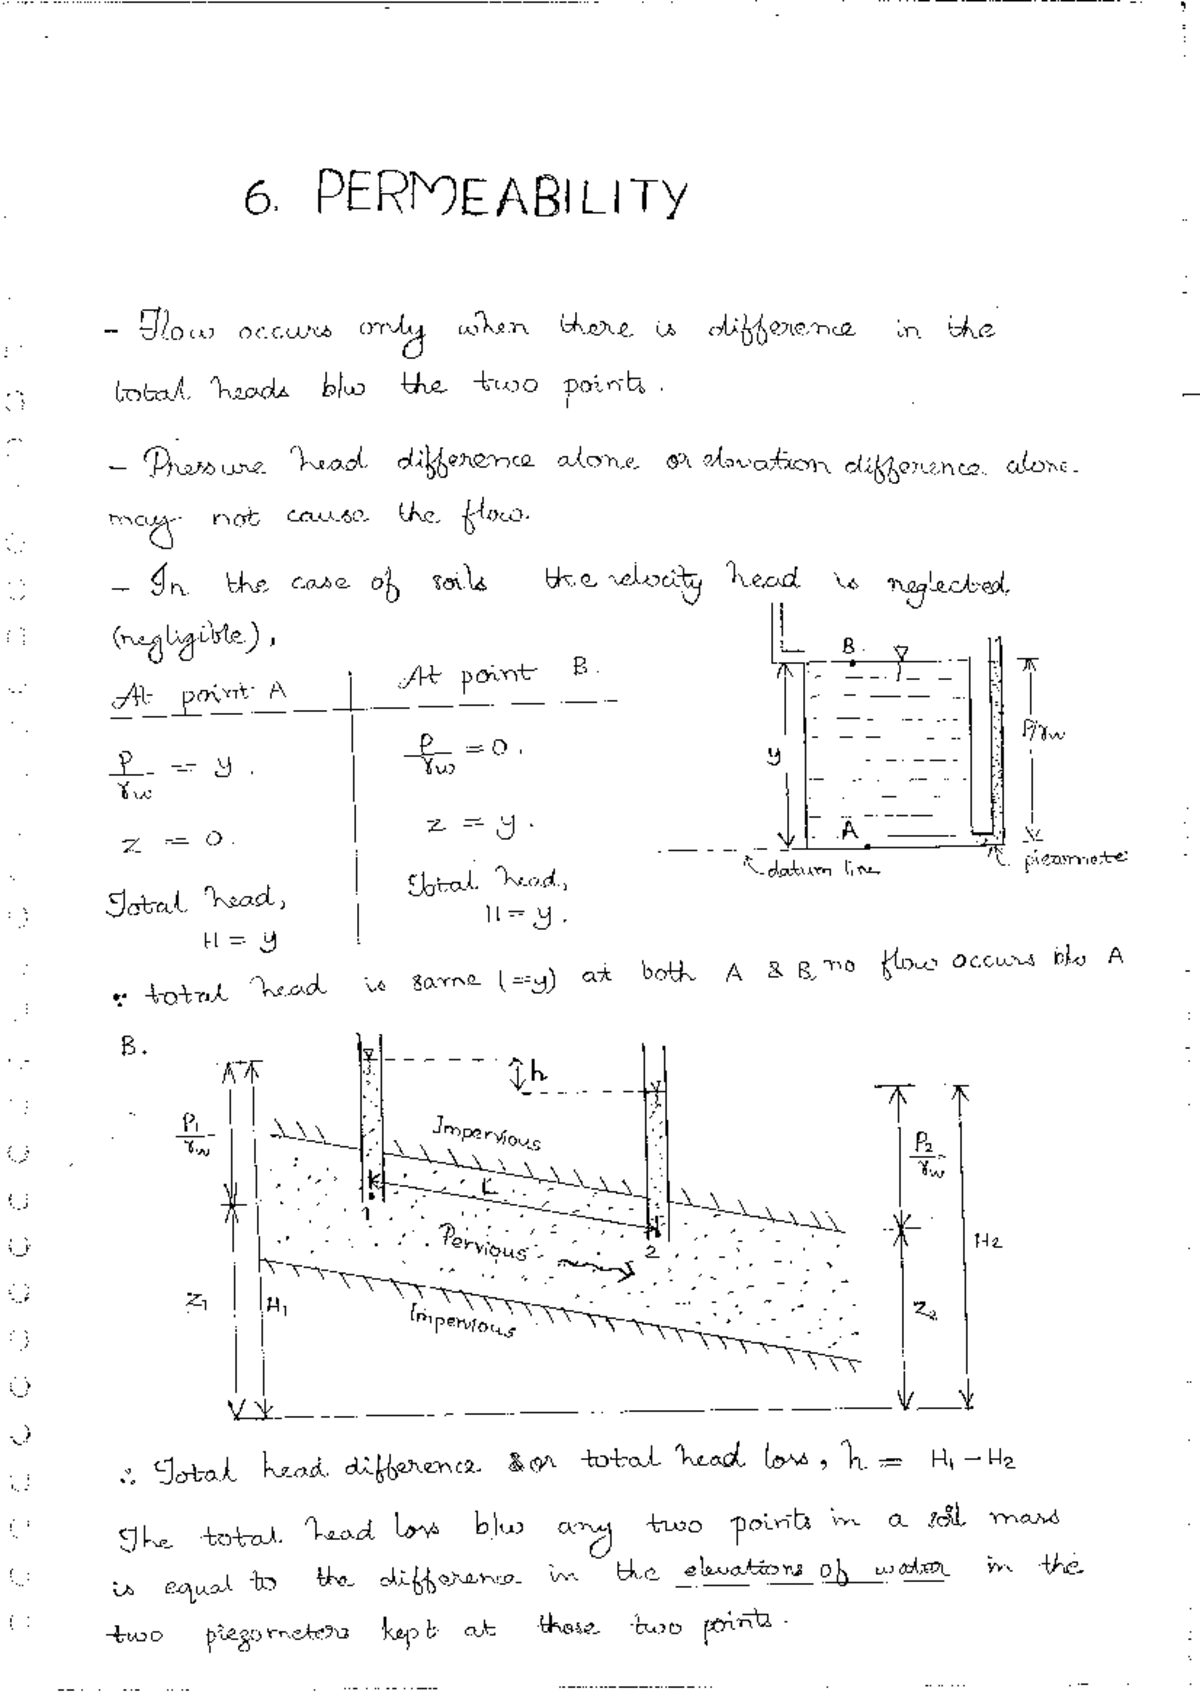 6. PERMEABILITY
- Flow occurs only when there is difference in the
total heads b/w the two points.
- Pressure head difference alone or elevation difference alone
may not cause the flow.
- In the case of soils the velocity head is neglected
(negligible),
At point A
P/γw = y.
z = 0.
Total head,
H = y
At point B.
P/γw = 0.
z = y.
Total head,
H = y.
B.
y
A
P/γw
datum line
piezomete
∵ total head is same (=y) at both A & B, no flow occurs b/w A
B.
h
P1/γw
Impervious
L
1
2
Pervious
Impervious
Z1
H1
P2/γw
H2
Z2
∴ Total head difference or total head loss, h = H1 - H2
The total head loss b/w any two points in a soil mass
is equal to the difference in the elevations of water in the
two piezometers kept at those two points.